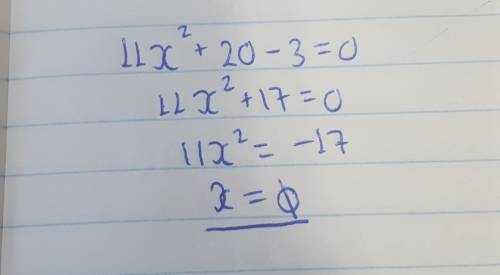 11x² + 20 - 3 = 0
11x² + 17 = 0
11x² = -17
x = ϕ